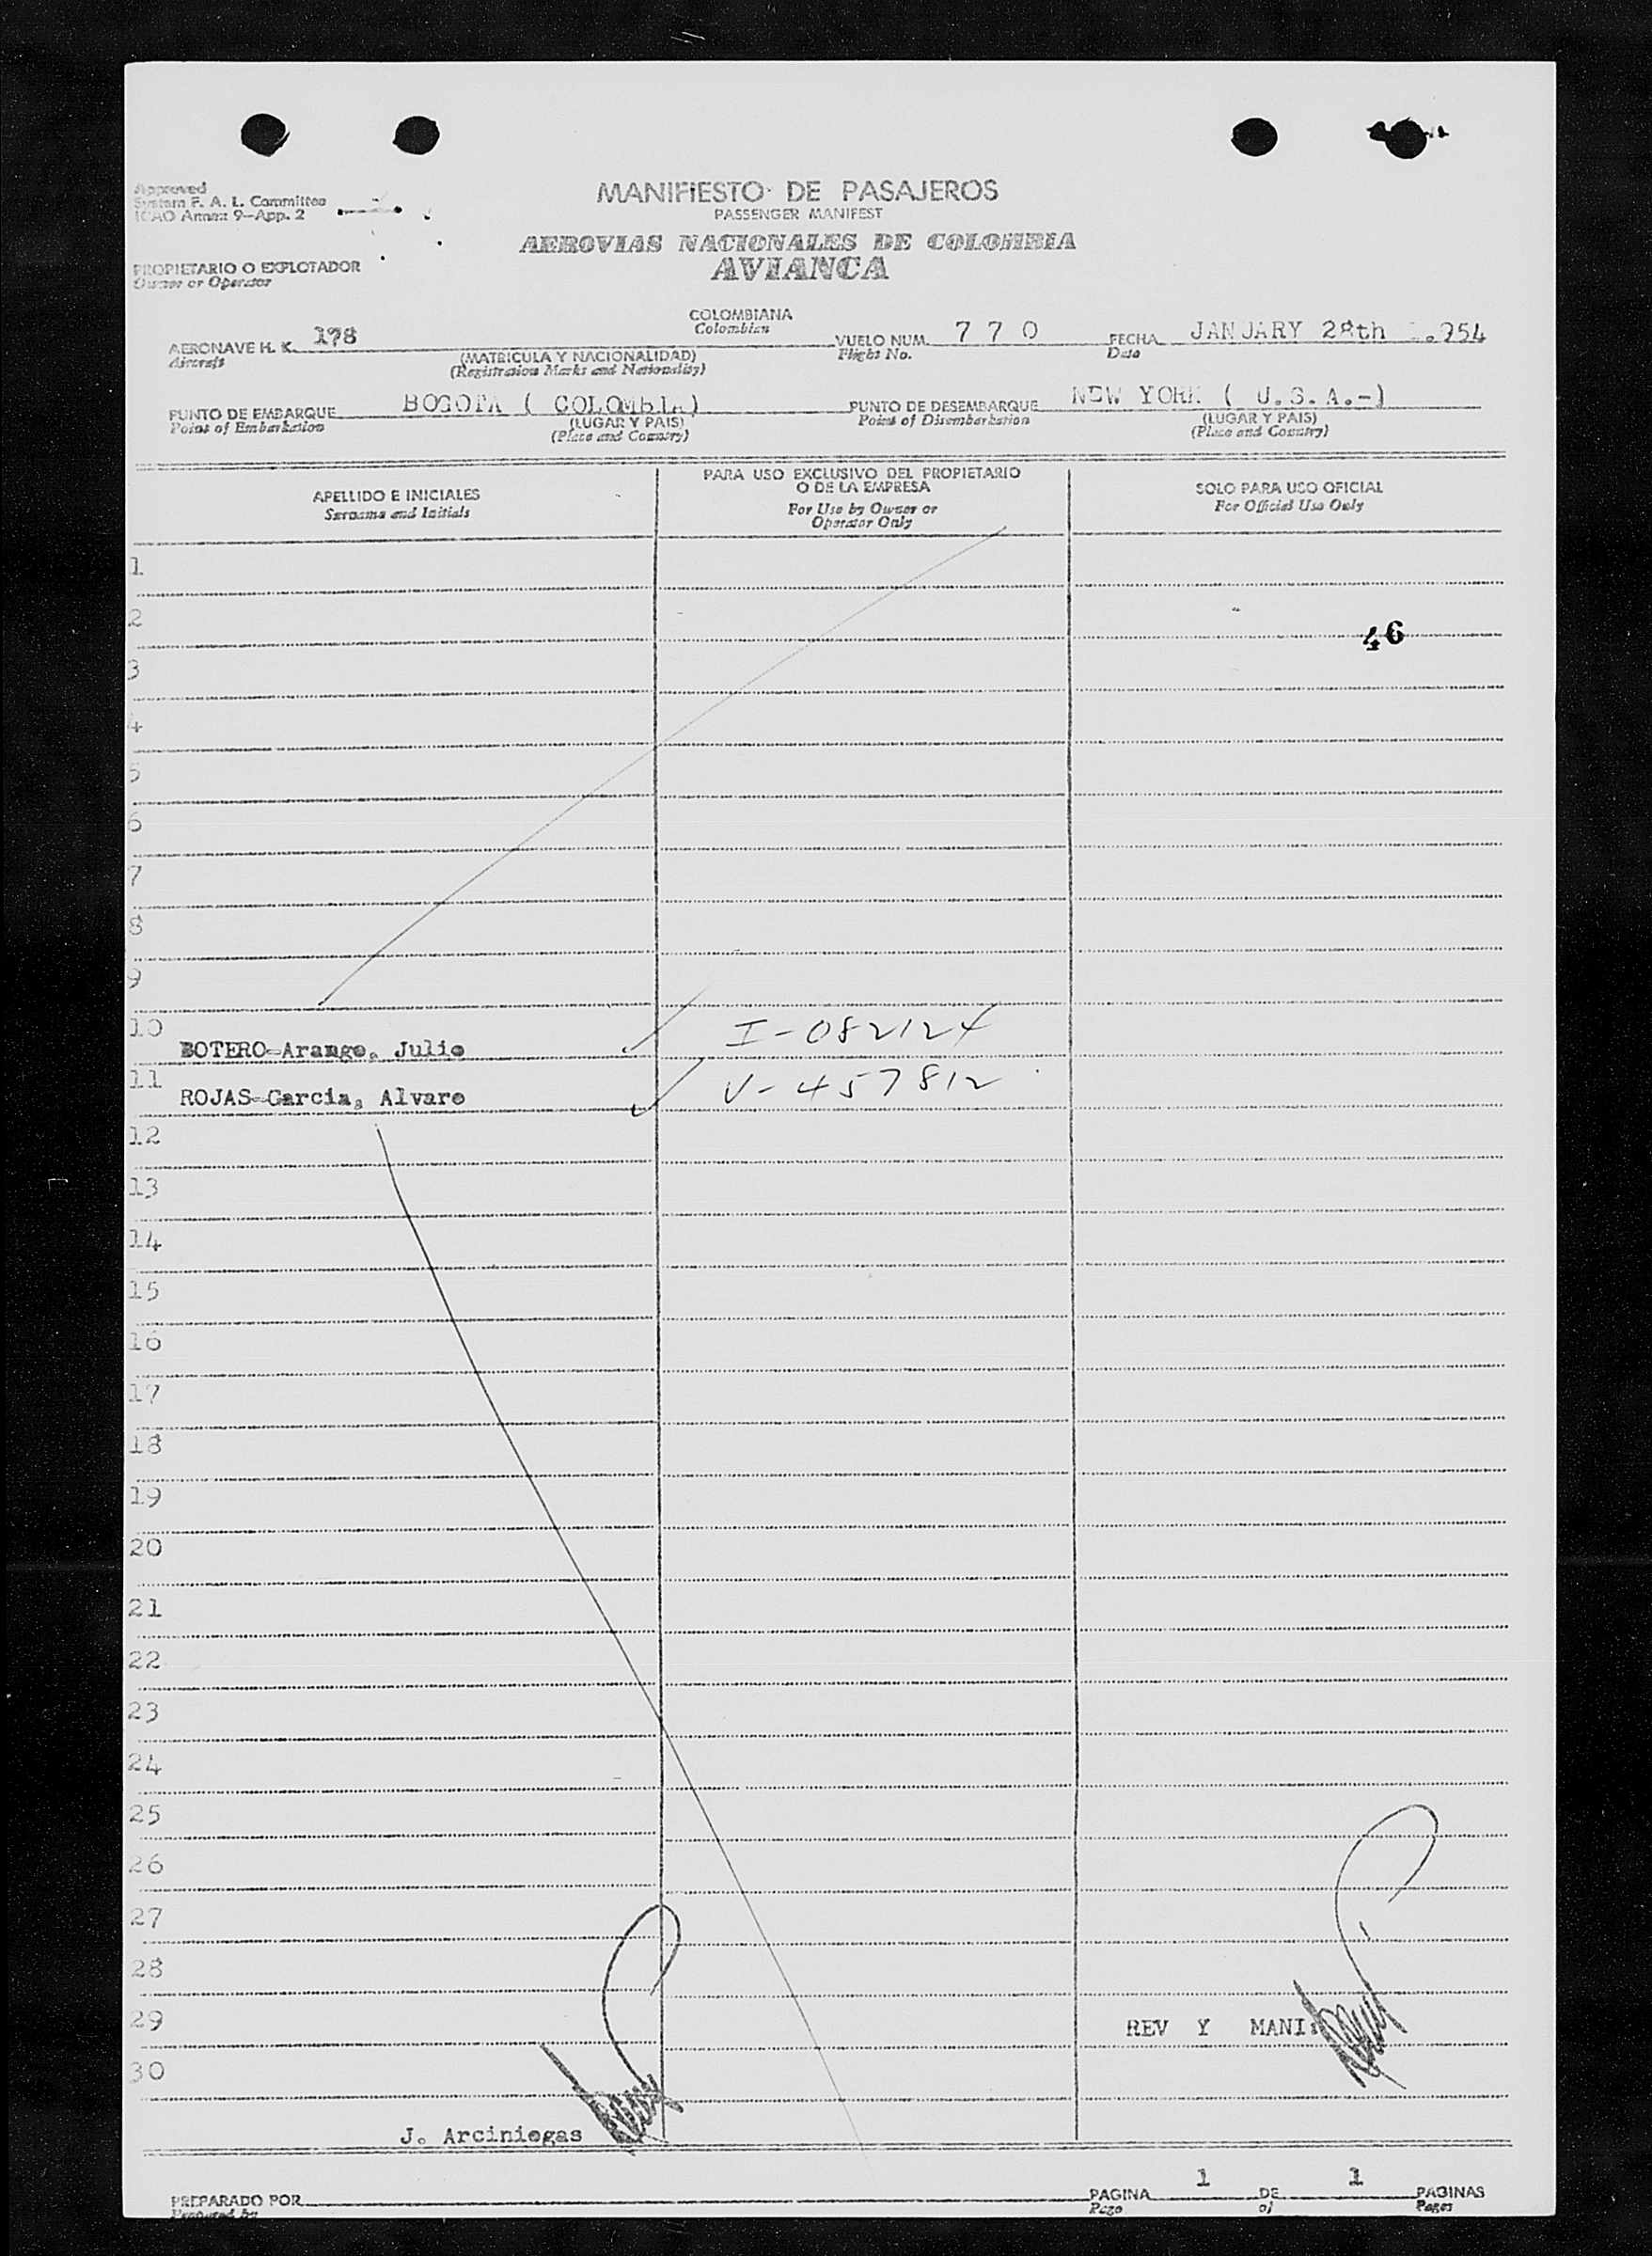 Approved
System F. A. L. Committee
ICAO Annex 9-App. 2
MANIFIESTO DE PASAJEROS
PASSENGER MANIFEST
AEROVIAS NACIONALES DE COLOMBIA
AVIANCA
PROPIETARIO O EXPLOTADOR
Owner or Operator
COLOMBIANA
Colombian
AERONAVE H. K. 178
Aircraft
(MATRICULA Y NACIONALIDAD)
(Registration Marks and Nationality)
VUELO NUM. 7 7 0
Flight No.
FECHA JANUARY 28th 1.954
Date
PUNTO DE EMBARQUE BOGOTA ( COLOMBIA)
Point of Embarkation
(LUGAR Y PAIS)
(Place and Country)
PUNTO DE DESEMBARQUE NEW YORK ( U.S.A.-)
Point of Disembarkation
(LUGAR Y PAIS)
(Place and Country)
APELLIDO E INICIALES
Surname and Initials
PARA USO EXCLUSIVO DEL PROPIETARIO
O DE LA EMPRESA
For Use by Owner or
Operator Only
SOLO PARA USO OFICIAL
For Official Use Only
1
2
46
3
4
5
6
7
8
9
10 BOTERO-Arango, Julio I-082124
11 ROJAS-Garcia, Alvaro V-457812
12
13
14
15
16
17
18
19
20
21
22
23
24
25
26
27
28
29 REV Y MANI:
30
J. Arciniegas
PREPARADO POR
Prepared by
PAGINA 1 DE 1 PAGINAS
Page of Pages